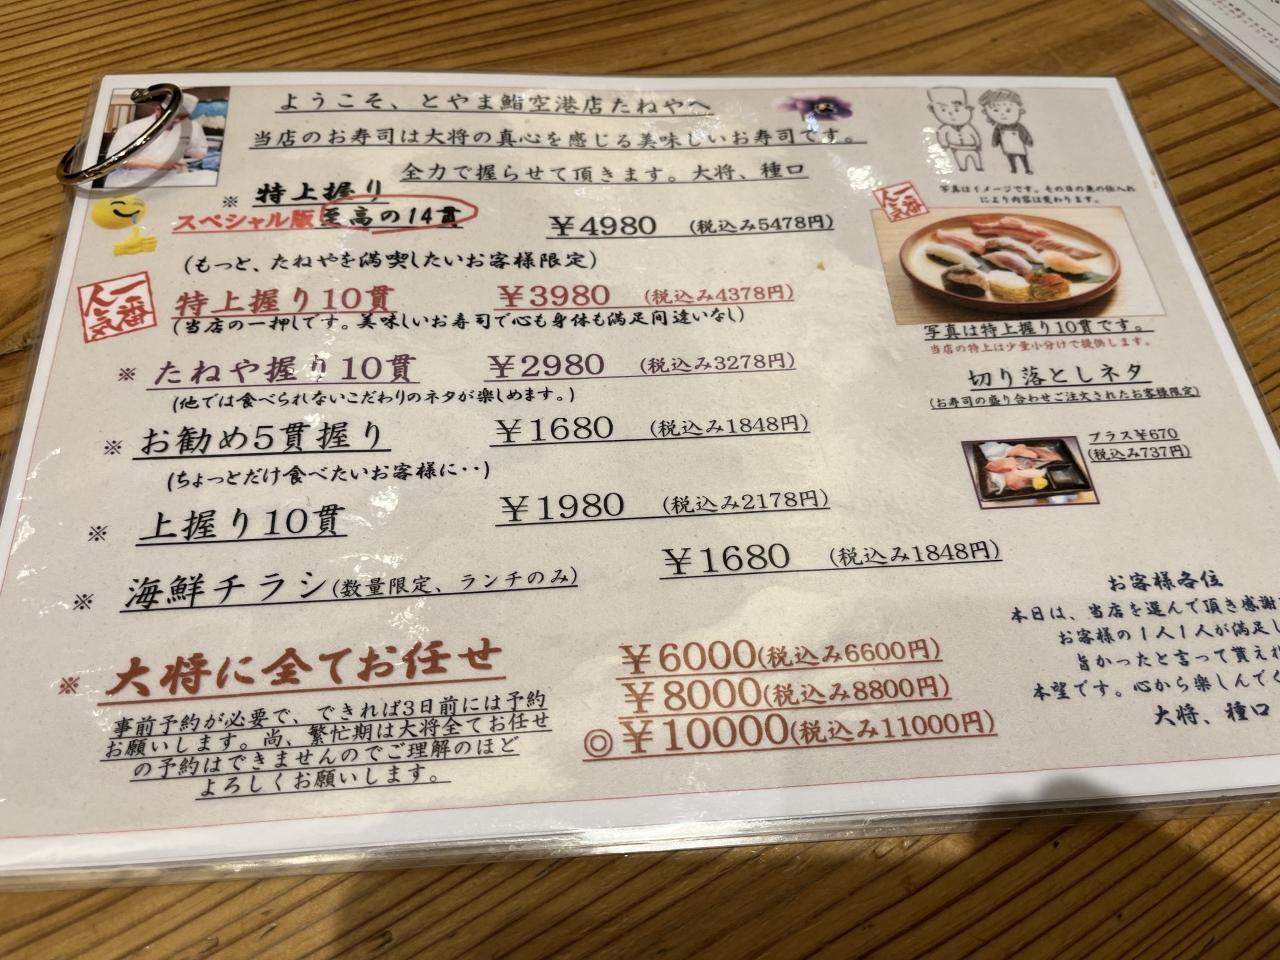 ようこそ、とやま鮨空港店たねやへ
当店のお寿司は大将の真心を感じる美味しいお寿司です。
全力で握らせて頂きます。大将、種口
※ 特上握り
スペシャル版 至高の14貫 ¥4980 (税込み5478円)
(もっと、たねやを満喫したいお客様限定)
一番人気
特上握り10貫 ¥3980 (税込み4378円)
(当店の一押しです。美味しいお寿司で心も身体も満足間違いなし)
※ たねや握り10貫 ¥2980 (税込み3278円)
(他では食べられないこだわりのネタが楽しめます。)
※ お勧め5貫握り ¥1680 (税込み1848円)
(ちょっとだけ食べたいお客様に・・)
※ 上握り10貫 ¥1980 (税込み2178円)
※ 海鮮チラシ(数量限定、ランチのみ) ¥1680 (税込み1848円)
※ 大将に全てお任せ
¥6000(税込み6600円)
¥8000(税込み8800円)
◎ ¥10000(税込み11000円)
事前予約が必要で、できれば3日前には予約
お願いします。尚、繁忙期は大将全てお任せ
の予約はできませんのでご理解のほど
よろしくお願いします。
写真はイメージです。その日の魚の仕入れ
により内容は変わります。
一番人気
写真は特上握り10貫です。
当店の特上は少量小分けで提供します。
切り落としネタ
(お寿司の盛り合わせご注文されたお客様限定)
プラス¥670
(税込み737円)
お客様各位
本日は、当店を選んで頂き感謝
お客様の1人1人が満足し
旨かったと言って貰え
本望です。心から楽しんで
大将、種口